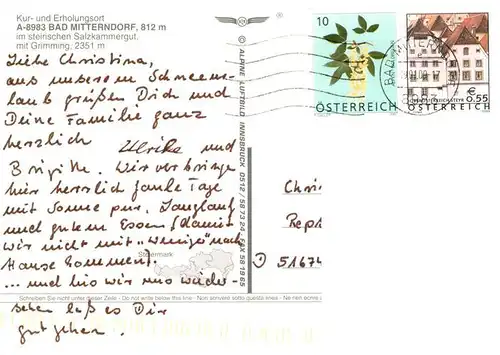 Kur- und Erholungsort
A-8983 BAD MITTERNDORF, 812 m
im steirischen Salzkammergut,
mit Grimming, 2351 m
Liebe Christina,
aus unserem Schneeur-
laub grüßen Dich und
Deine Familie ganz
herzlich Ulrike und
Brigitte. Wir verbringe
hier herrlich faule Tage
mit Sonne pur, Langlauf
und gutem Essen (damit
wir nicht mit "weniger" nach
Hause kommen)
... und bis wir uns wieder-
sehen laß es Dir
gut gehen.
Steiermark
Schreiben Sie nicht unter dieser Linie - Do not write below this line - Non scrivere sotto questa linea -
© ALPINE LUFTBILD INNSBRUCK 0512/58 73 24 FAX 58 19 85
10
ÖSTERREICH
€ 0.55
ÖSTERREICH
BAD MITTERN
8983
Chri
Repr
D 5167